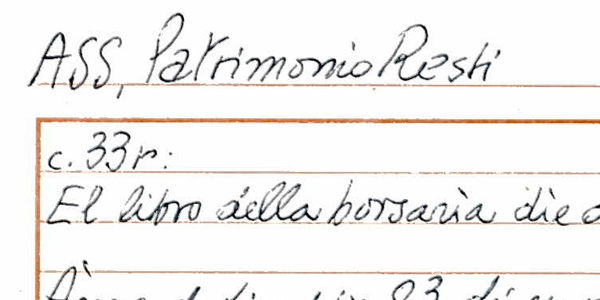 ASS, Patrimonio Resti
c. 33r:
El libro della borsaria die